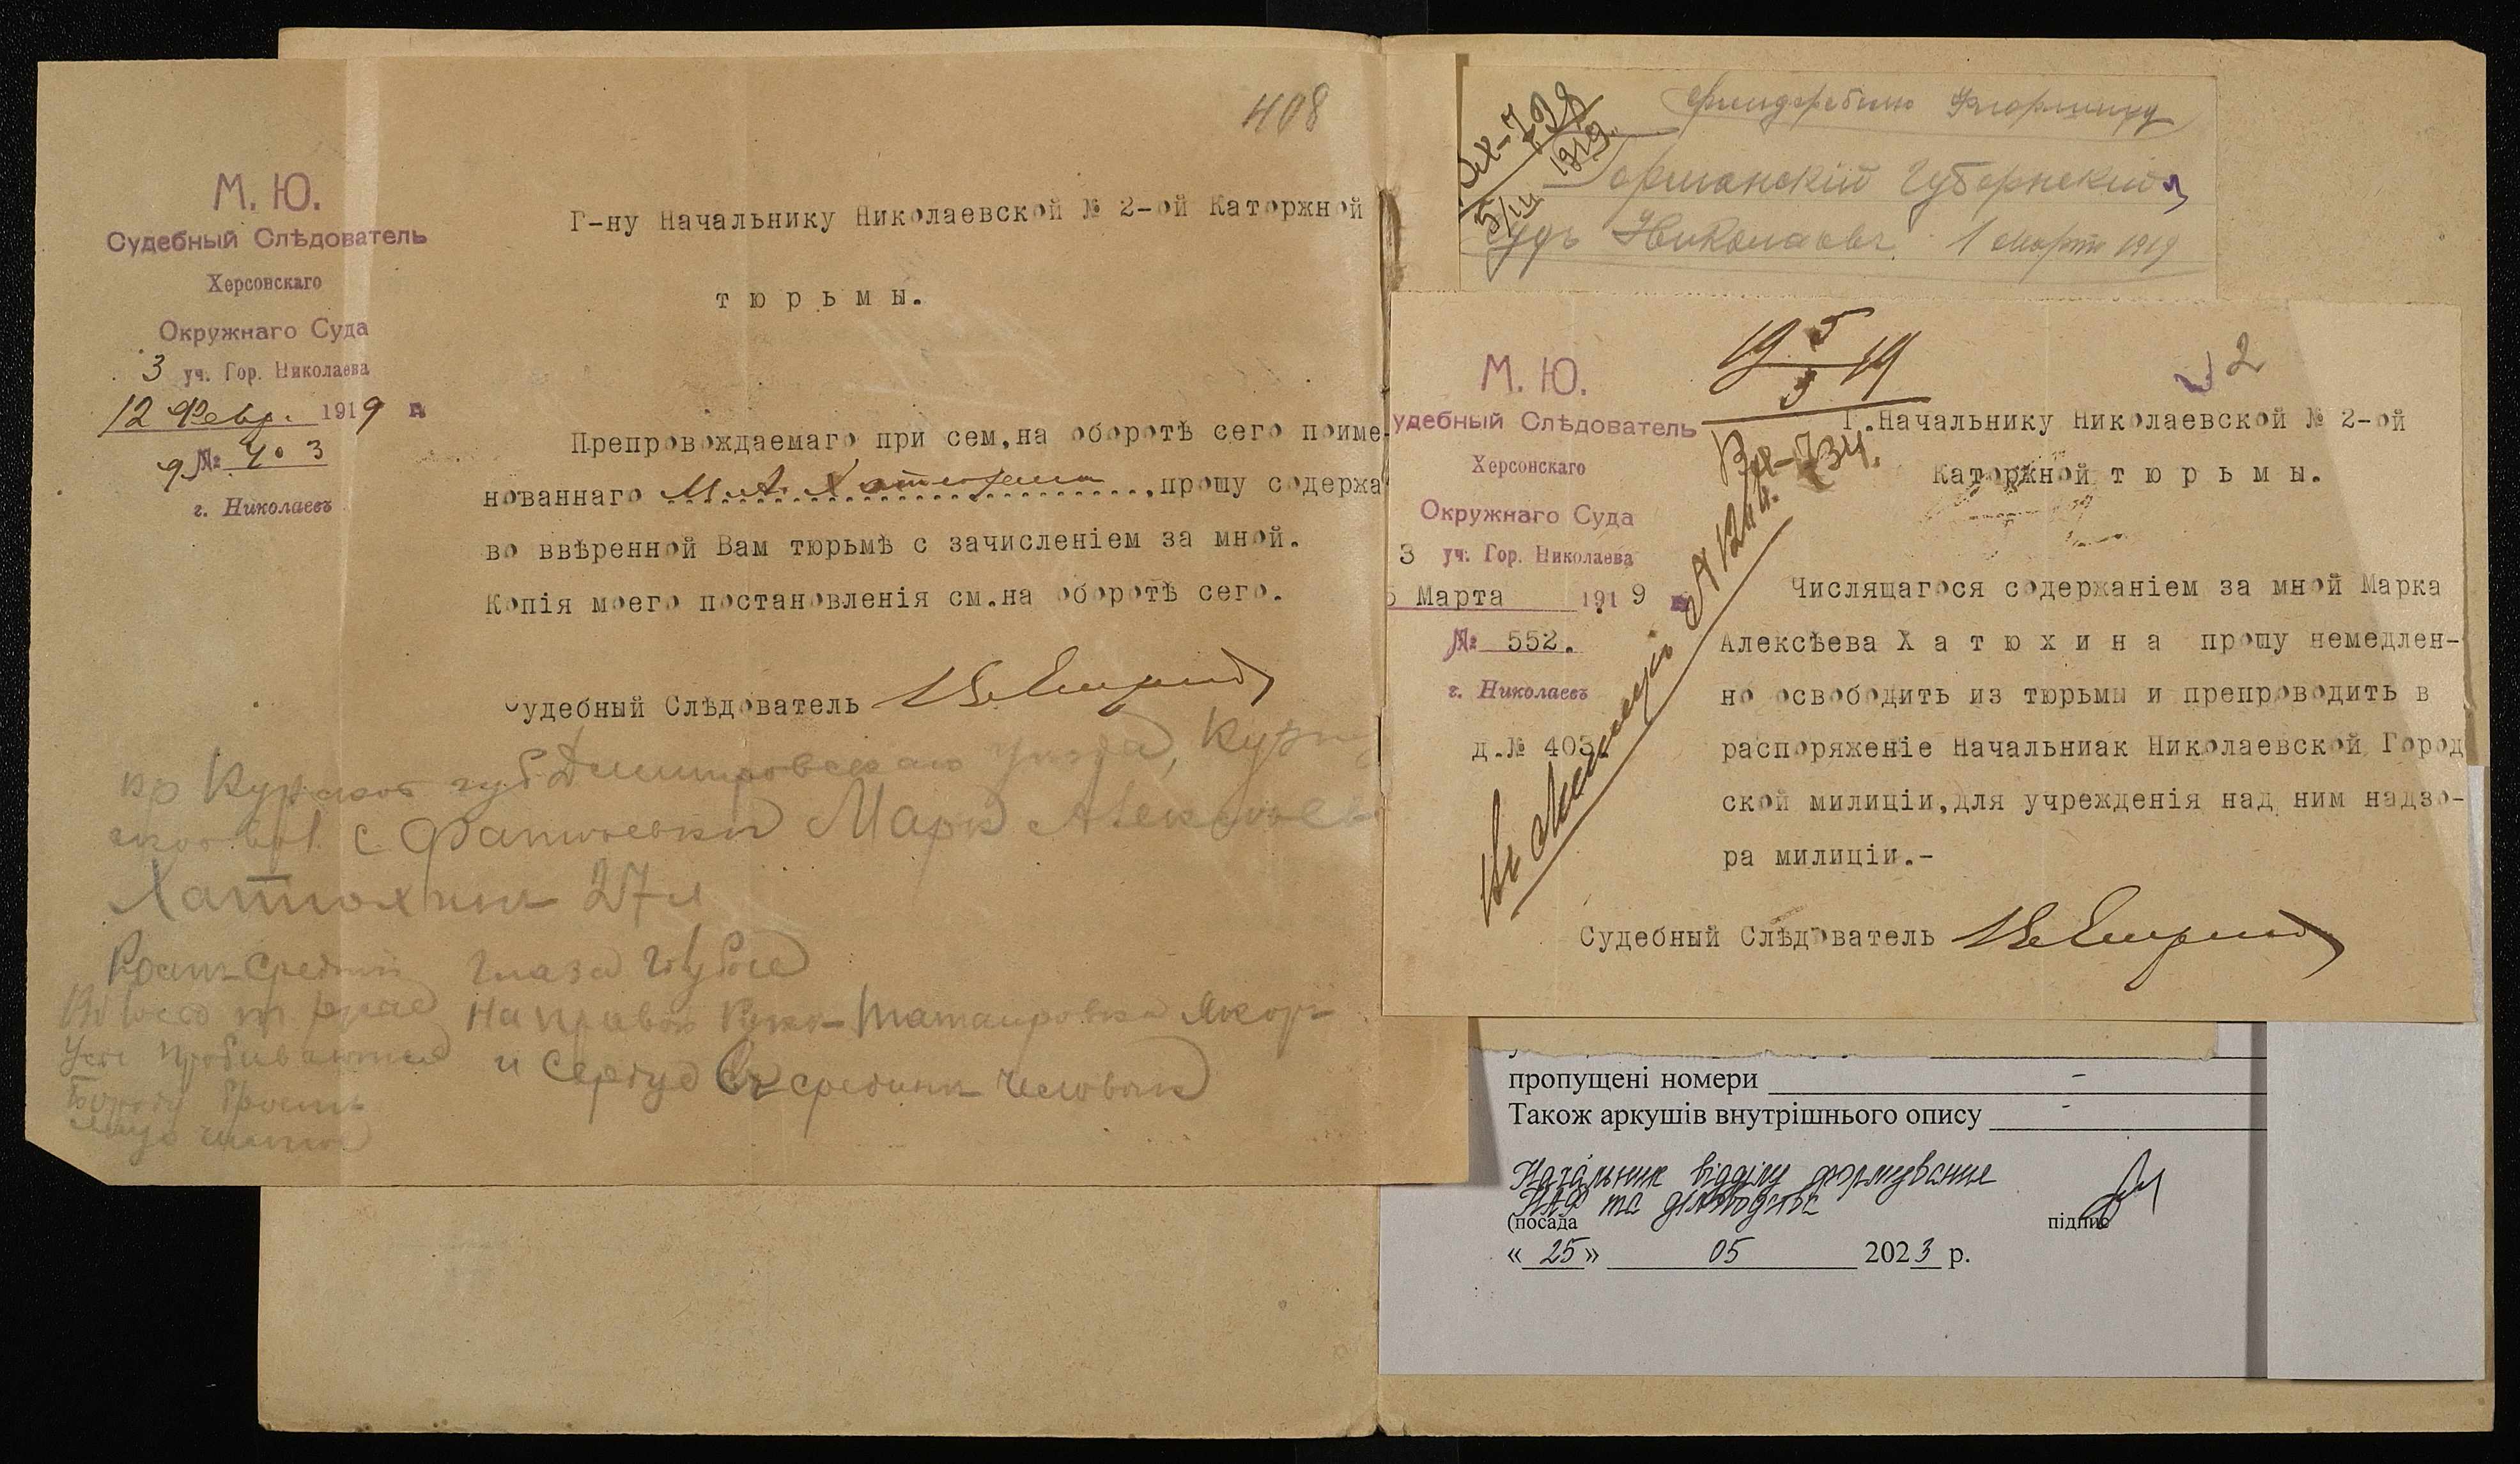 408
М. Ю.
Судебный Слѣдователь
Херсонскаго
Окружнаго Суда
3 уч. Гор. Николаева
12 Февр. 1919 г.
№ 403
г. Николаевъ
Г-ну Начальнику Николаевской № 2-ой Каторжной
тюрьмы.
Препровождаемаго при сем, на оборотѣ сего поиме-
нованнаго М. А. Хатюхина, прошу содержа
во ввѣренной Вам тюрьмѣ с зачисленіем за мной.
Копія моего постановленія см. на оборотѣ сего.
удебный Слѣдователь
кр Курской губ Дмитровскаго уезда,
с Фатиевки Марк Алексеев
Хатюхин 27 л
Рост средний глаза голубые
На правой руке татаировка Якорь
Усы пробиваются и Сердце в средине человек
Бороду броет
лицо чистое
Вх-729
5/III 1919
Германскій Губернскій
Судъ Николаевъ 1 марта 1919
19 5/3 19
Вх-734.
2
М. Ю.
удебный Слѣдователь
Херсонскаго
Окружнаго Суда
3 уч. Гор. Николаева
5 Марта 1919 г.
№ 552.
г. Николаевъ
д.№ 403.
Г. Начальнику Николаевской № 2-ой
Каторжной тюрьмы.
Числящагося содержаніем за мной Марка
Алексѣева Хатюхина прошу немедлен-
но освободить из тюрьмы и препроводить в
распоряженіе Начальниак Николаевской Город
ской милиціи, для учрежденія над ним надзо-
ра милиціи.-
Судебный Слѣдователь
пропущені номери -
Також аркушів внутрішнього опису -
Начальник відділу формування
НАФ та діловодства
(посада підпис
« 25 » 05 2023 р.